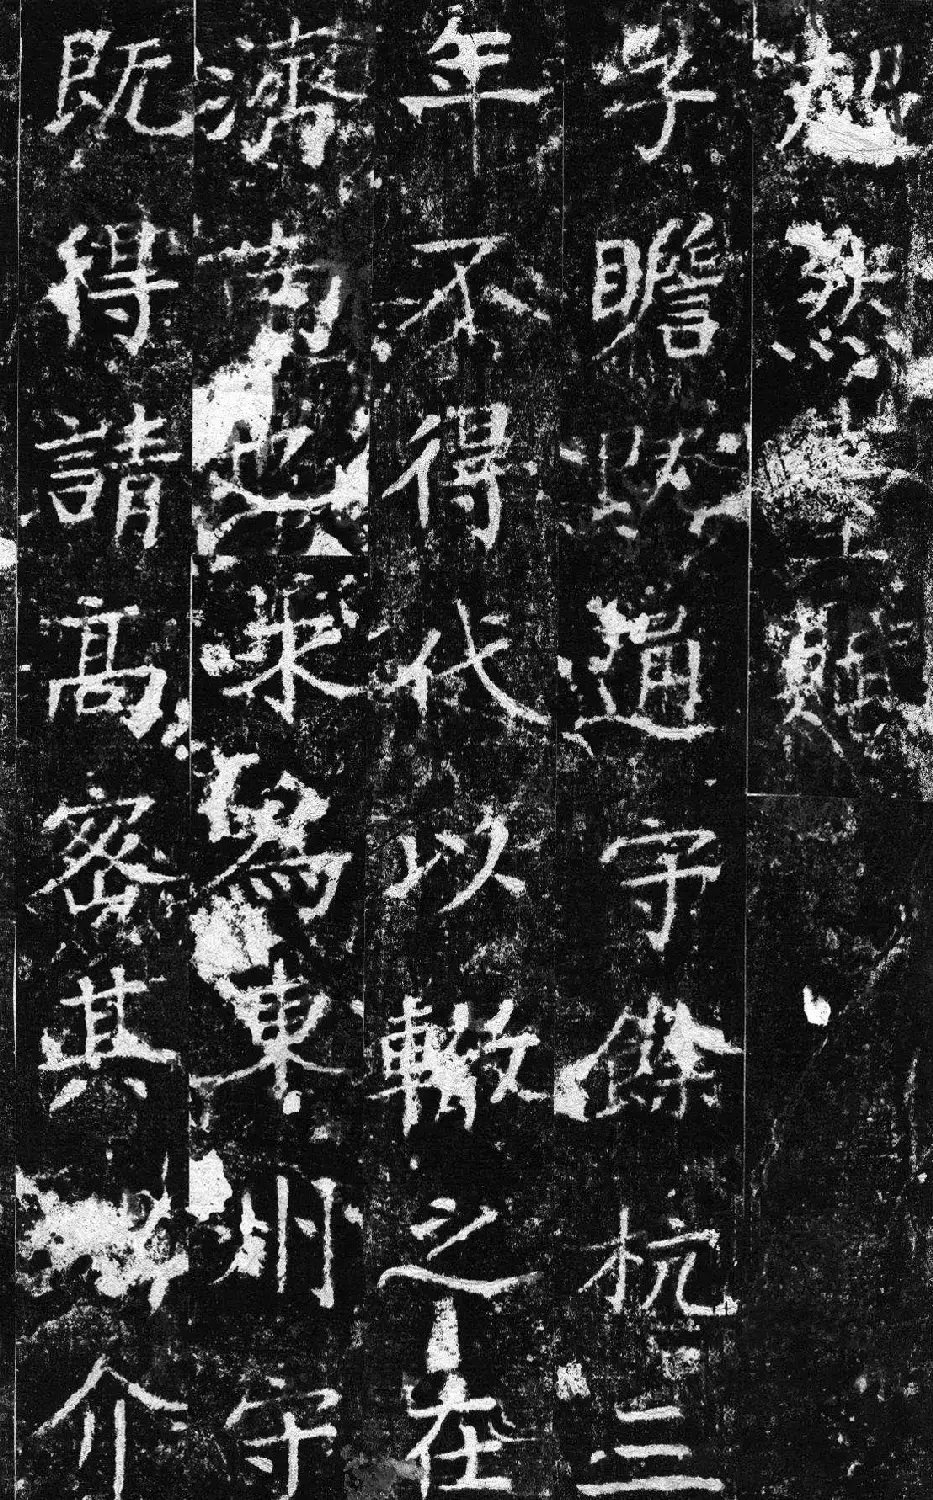 超然臺賦
子瞻既通守餘杭三
年不得代以轍之在
濟南也求為東州守
既得請高密其地介